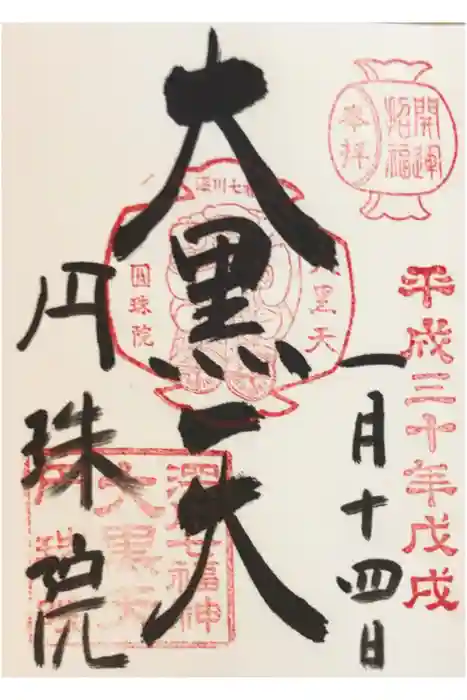 開運
招福
奉拝
平成三十年戊戌
一月十四日
深川七福神
大黒天
圓珠院
大黒天
円珠院
深川七福神
大黒天
円珠院